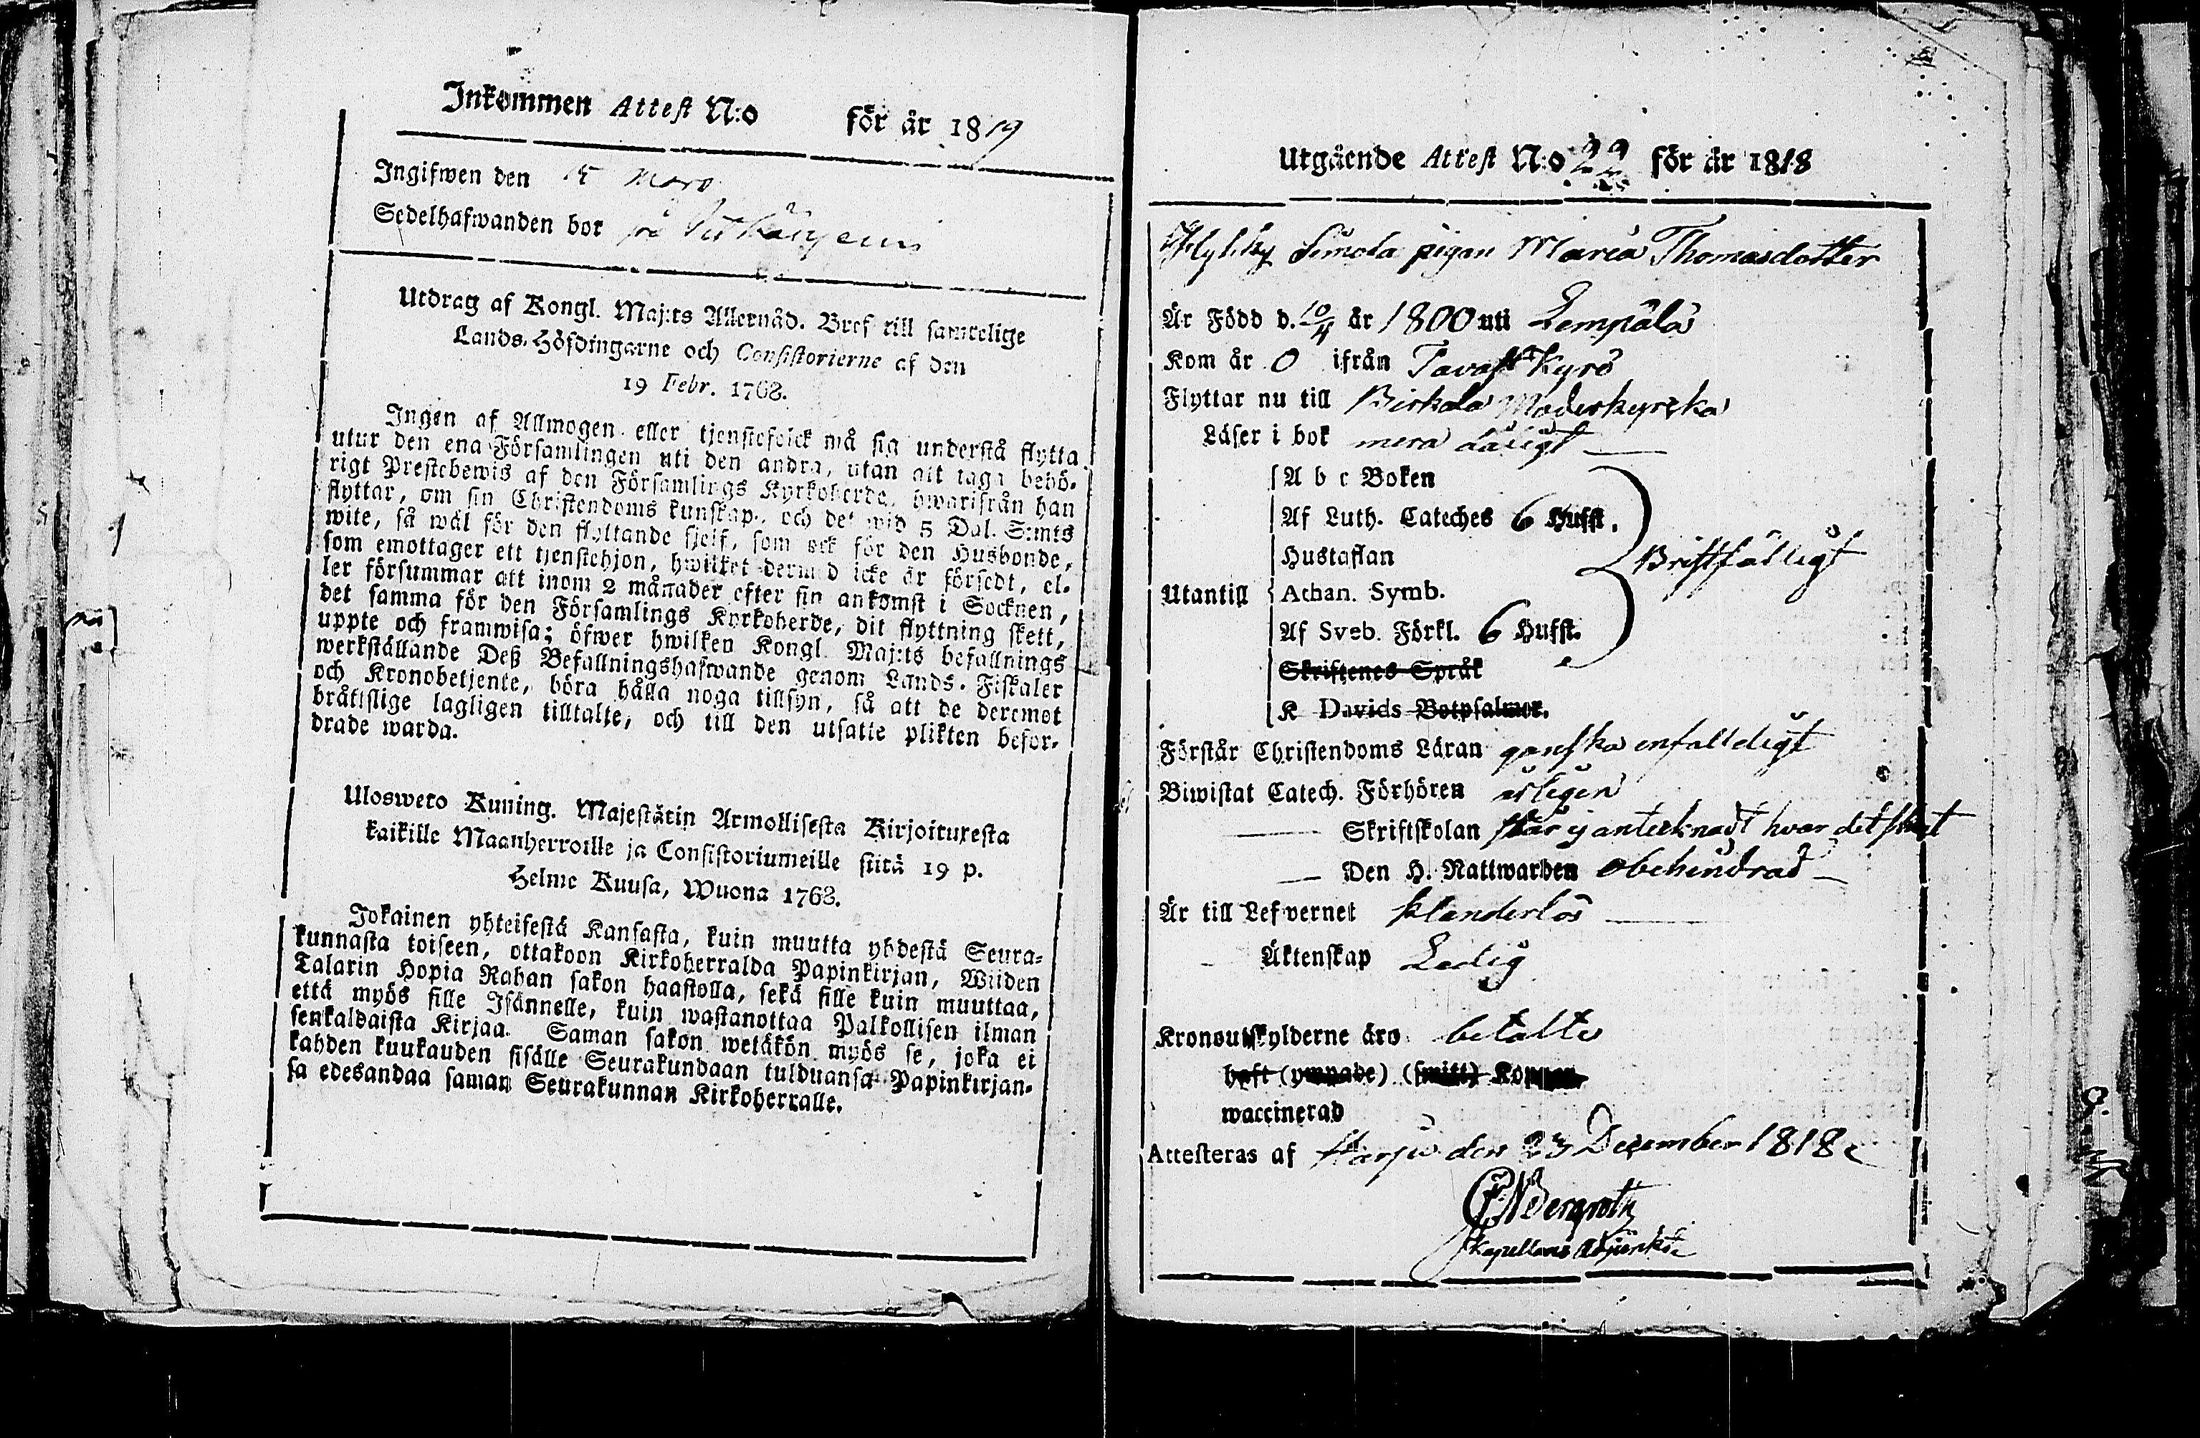 Inkommen Attest N:o för år 1819
Ingifwen den 15 Mars
Sedelhafwanden bor på
Utdrag af Kongl. Maj:ts Allernåd. Bref till samtelige
Lands-Höfdingarne och Consistorierne af den
19 Febr. 1768.
Ingen af Allmogen eller tjenstefolck må sig understå flytta
utur den ena Församlingen uti den andra, utan att taga behö-
rigt Prestebewis af den Församlings Kyrkoherde, hwarifrån han
flyttar, om sin Christendoms kunskap, och det wid 5 Dal. S:mts
wite, så wäl för den flyttande sjelf, som ock för den Husbonde,
som emottager ett tjenstehjon, hwilket dermed icke är försedt, el-
ler försummar att inom 2 månader efter sin ankomst i Socknen,
det samma för den Församlings Kyrkoherde, dit flyttning skett,
uppte och framwisa; öfwer hwilken Kongl. Maj:ts befallnings
werkställande Deß Befallningshafwande genom Lands-Fiskaler
och Kronobetjente, böra hålla noga tillsyn, så att de deremot
bråttslige lagligen tilltalte, och till den utsatte plikten befor-
drade warda.
Ulosweto Kuning. Majestätin Armollisesta Kirjoituxesta
kaikille Maanherroille ja Consistoriumeille siitä 19 p.
Helme Kuusa, Wuona 1768.
Jokainen yhteisestä Kansasta, kuin muutta yhdestä Seura-
kunnasta toiseen, ottakoon Kirkoherralda Papinkirjan, Wiiden
Talarin Hopia Rahan sakon haastolla, sekä sille kuin muuttaa,
että myös sille Isännelle, kuin wastanottaa Palkollisen ilman
senkaldaista Kirjaa. Saman sakon wetäkön myös se, joka ei
kahden kuukauden sisälle Seurakundaan tulduansa Papinkirjan-
sa edesandaa saman Seurakunnan Kirkoherralle.
Utgående Attest N:o 22 för år 1818
Simola pigan Maria Thomasdotter
Är Född d. 10/4 år 1800 uti Lempälä
Kom år 0 ifrån Tavast Kyrö
Flyttar nu till Birkala Moderkyrka
Läser i bok mera dåligt
A b c Boken
Af Luth. Cateches 6 Hufst.
Hustaflan
Utantill Athan. Symb.
Bristfälligt
Af Sveb. Förkl. 6 Hufst.
Skriftenes Språk
K Davids Botpsalmer.
Förstår Christendoms Läran ganska enfalldigt
Biwistat Catech. Förhören årligen
Skriftskolan står ej antecknadt hvar det skedt
Den H. Nattwarden obehindrad
Är till Lefvernet klanderlös
Äktenskap Ledig
Kronoutskylderne äro betalte
haft (ympade) (smitt) Koppor
waccinerad
Attesteras af Harju den 23 December 1818
Bergroth
Kapellans Adjunkt